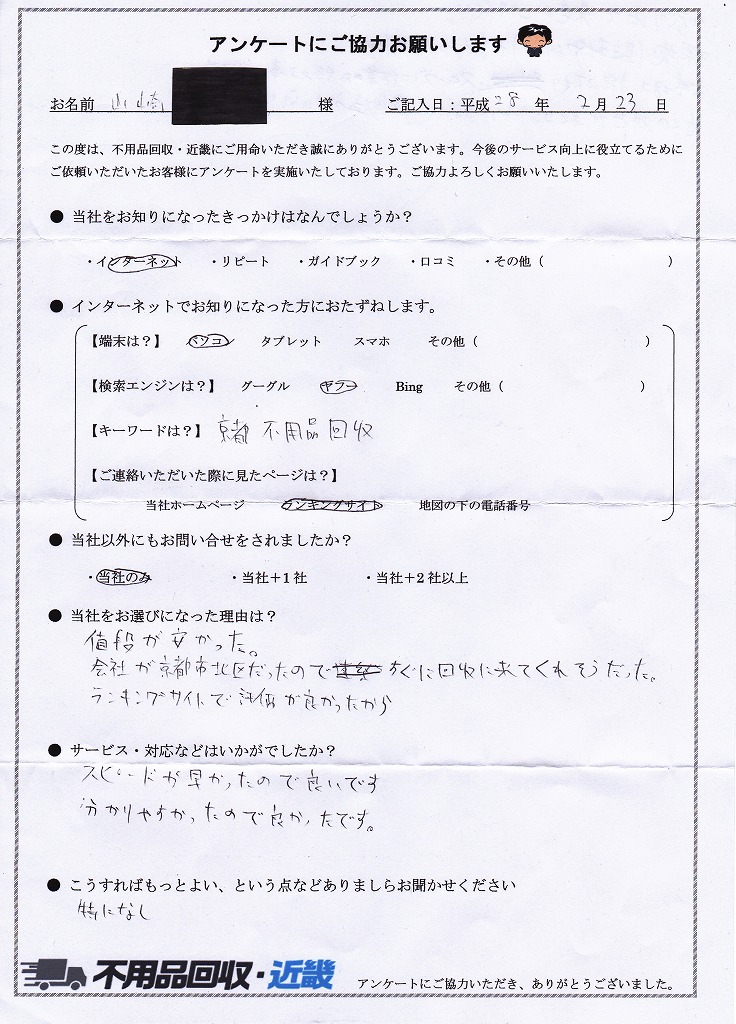 アンケートにご協力お願いします
お名前 山崎 様 ご記入日：平成 28 年 2 月 23 日
この度は、不用品回収・近畿にご用命いただき誠にありがとうございます。今後のサービス向上に役立てるために
ご依頼いただいたお客様にアンケートを実施いたしております。ご協力よろしくお願いいたします。
● 当社をお知りになったきっかけはなんでしょうか？
・インターネット ・リピート ・ガイドブック ・口コミ ・その他（ ）
● インターネットでお知りになった方におたずねします。
【端末は？】 パソコン タブレット スマホ その他（ ）
【検索エンジンは？】 グーグル ヤフー Bing その他（ ）
【キーワードは？】 京都 不用品回収
【ご連絡いただいた際に見たページは？】
当社ホームページ ランキングサイト 地図の下の電話番号
● 当社以外にもお問い合せをされましたか？
・当社のみ ・当社＋１社 ・当社＋２社以上
● 当社をお選びになった理由は？
値段が安かった。
会社が京都市北区だったので すぐに回収に来てくれそうだった。
ランキングサイトで評価が良かったから
● サービス・対応などはいかがでしたか？
スピードが早かったので良いです
分かりやすかったので良かったです。
● こうすればもっとよい、という点などありましらお聞かせください
特になし
不用品回収・近畿
アンケートにご協力いただき、ありがとうございました。